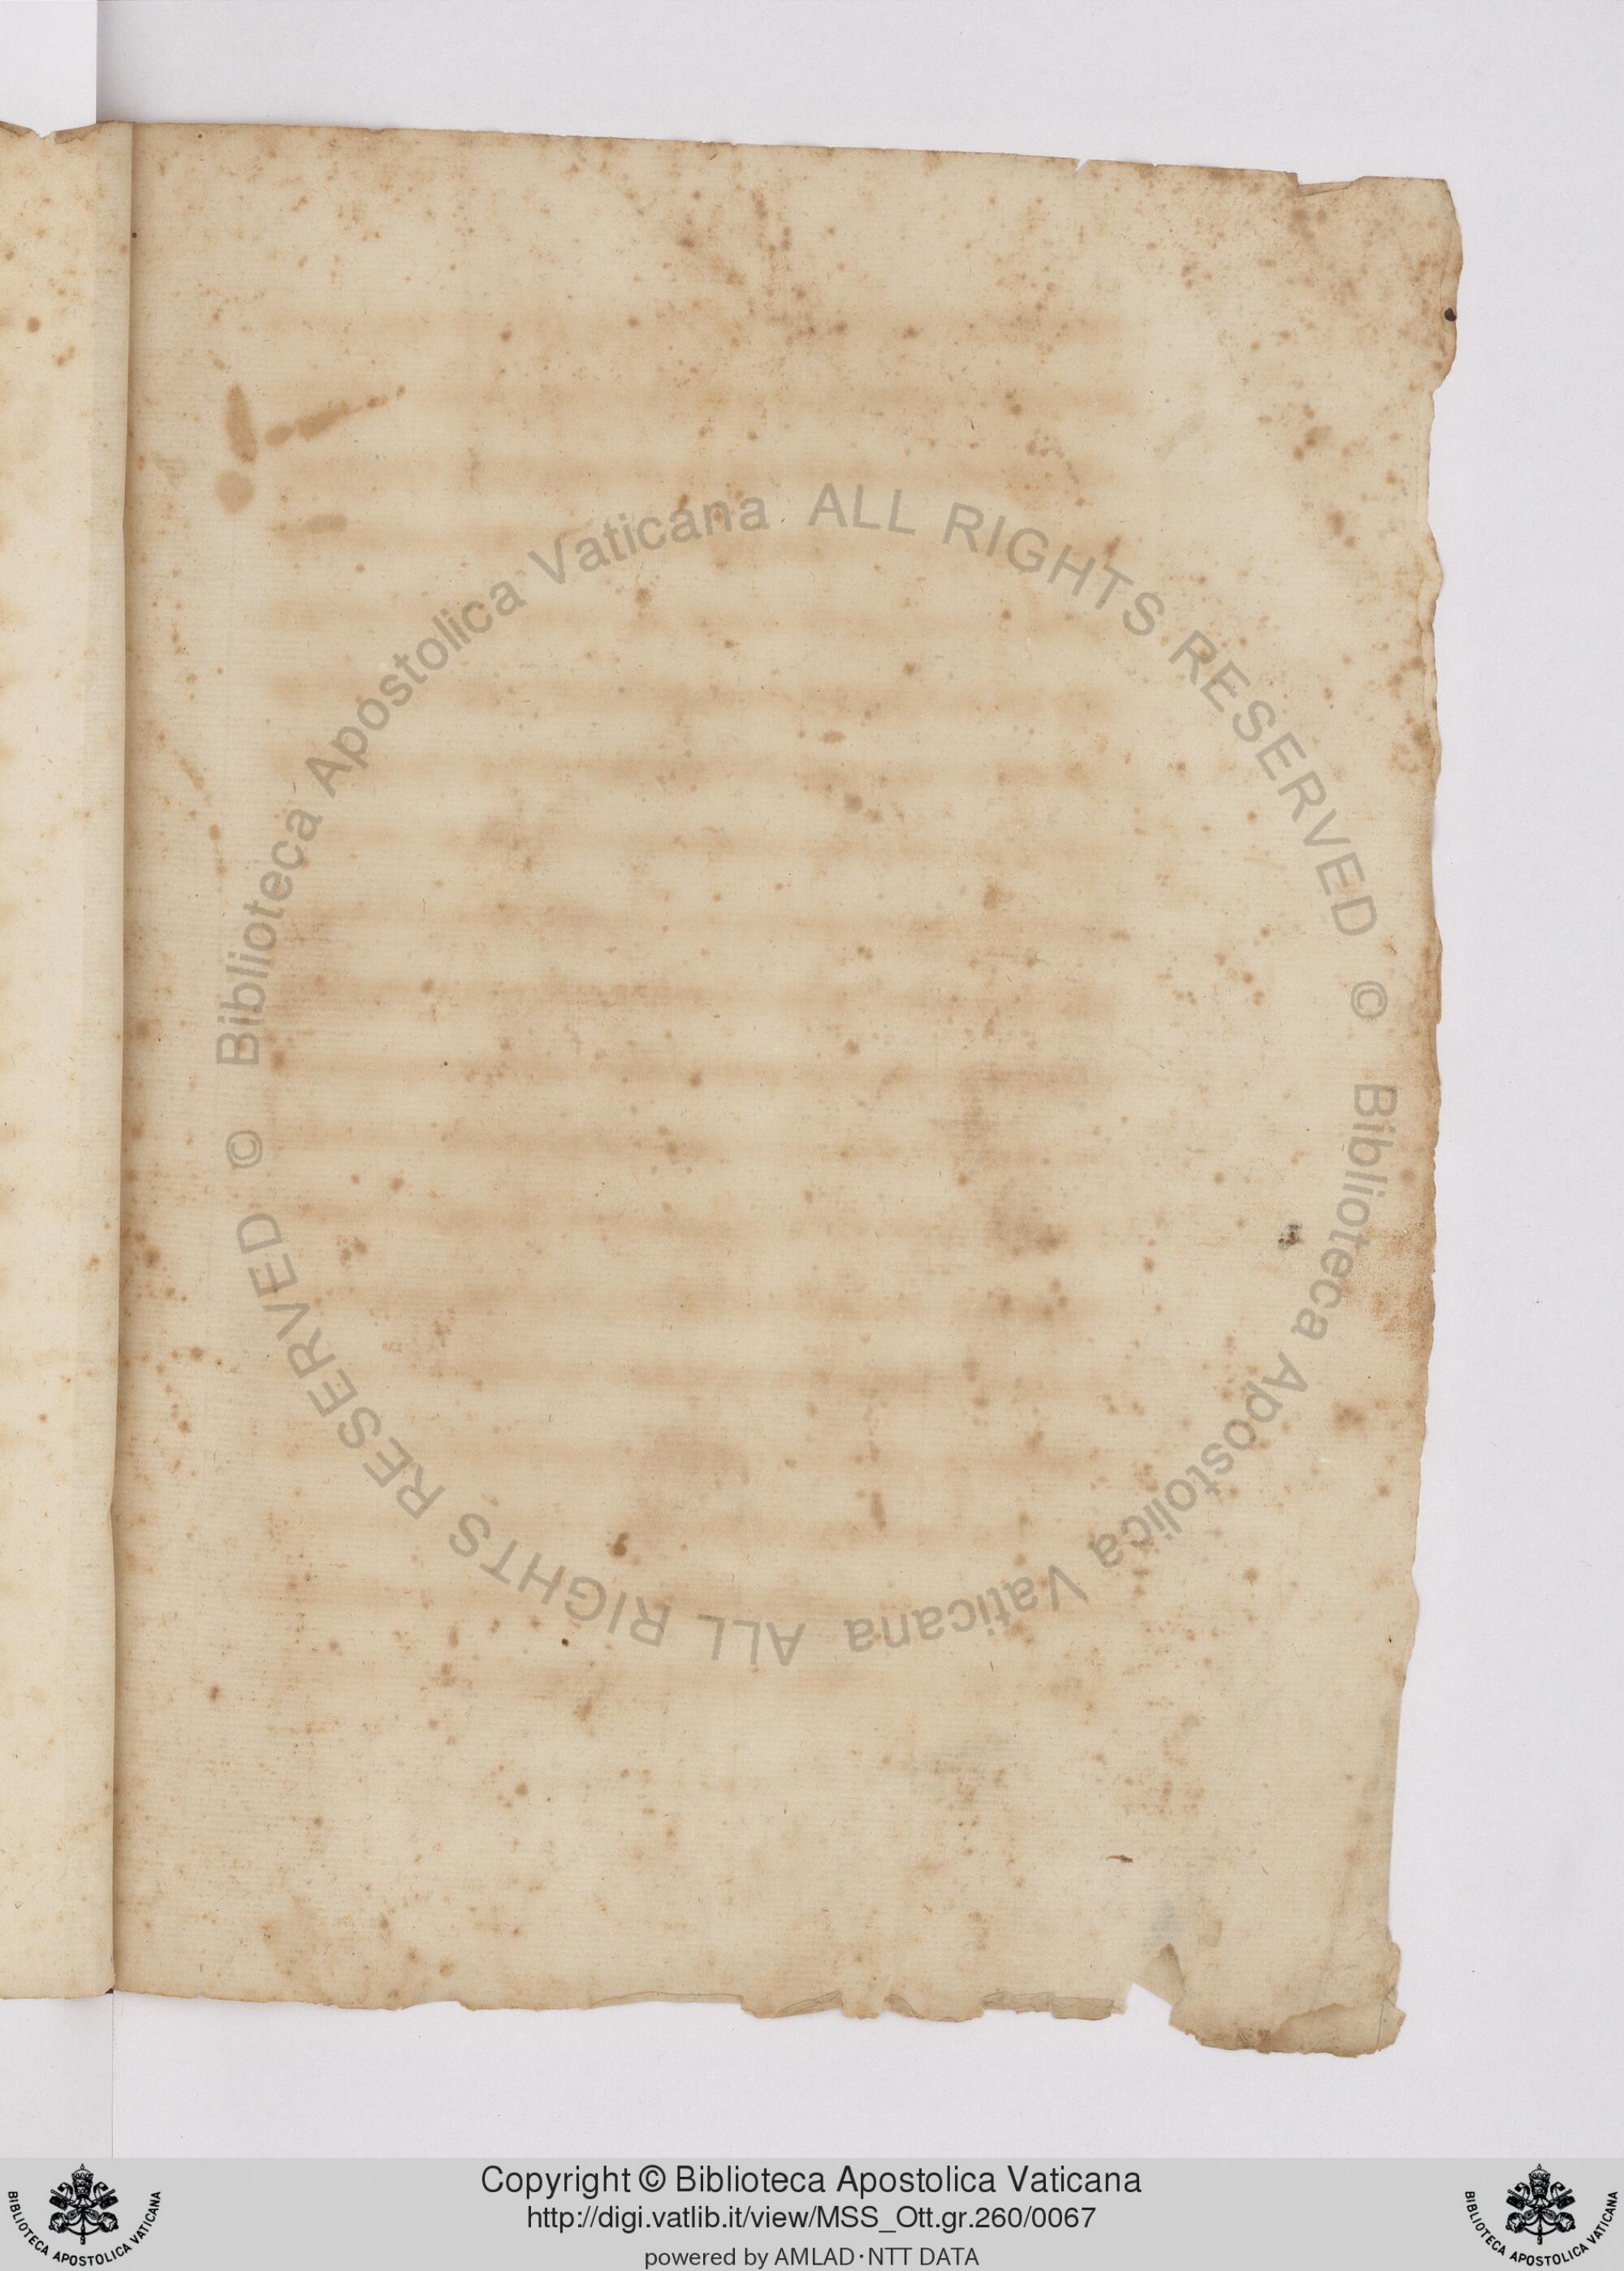 © Biblioteca Apostolica Vaticana ALL RIGHTS RESERVED
© Biblioteca Apostolica Vaticana ALL RIGHTS RESERVED
Copyright © Biblioteca Apostolica Vaticana
http://digi.vatlib.it/view/MSS_Ott.gr.260/0067
powered by AMLAD·NTT DATA
BIBLIOTECA APOSTOLICA VATICANA
BIBLIOTECA APOSTOLICA VATICANA